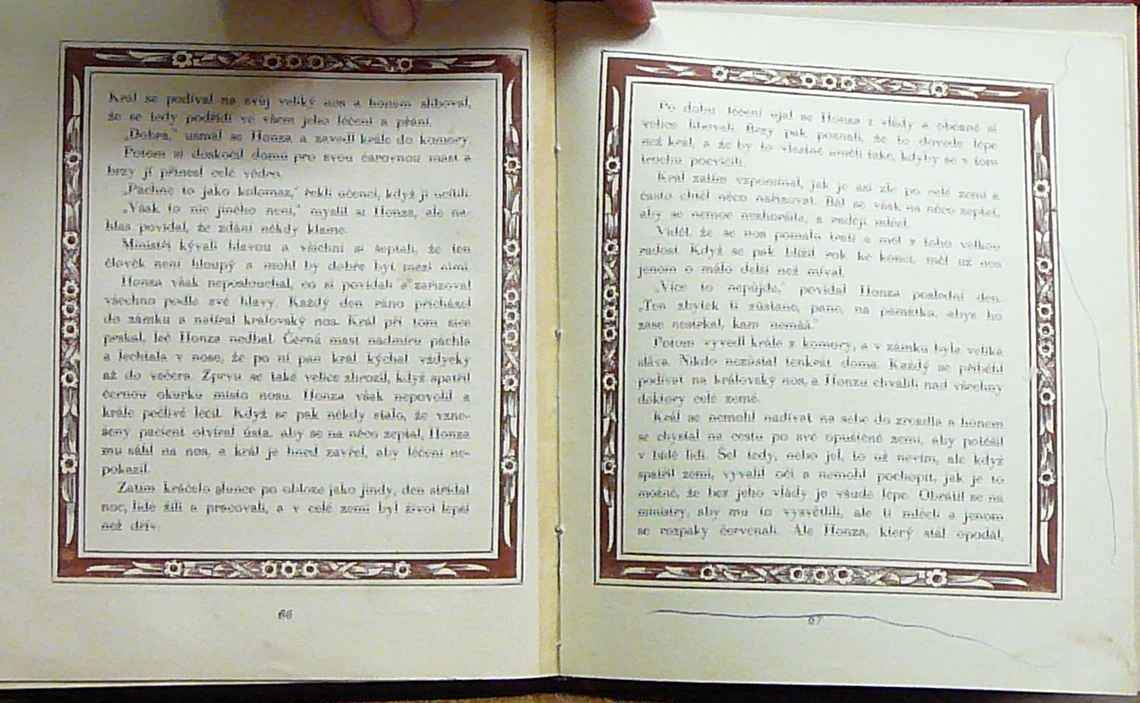 Král se podíval na svůj veliký nos a honem sliboval,
že se tedy podřídí ve všem jeho léčení a přání.
„Dobrá,“ usmál se Honza a zavedl krále do komory.
Potom si doskočil domů pro svou čarovnou mast a
brzy jí přinesl celé vědro.
„Páchne to jako kolomaz,“ řekli učenci, když ji ucítili.
„Však to nic jiného není,“ myslil si Honza, ale na-
hlas povídal, že zdání někdy klame.
Ministři kývali hlavou a všichni si šeptali, že ten
člověk není hloupý a mohl by dobře být mezi nimi.
Honza však neposlouchal, co si povídali a zařizoval
všechno podle své hlavy. Každý den ráno přicházel
do zámku a natíral královský nos. Král při tom sice
prskal, leč Honza nedbal. Černá mast nadmíru páchla
a lechtala v nose, že po ní pan král kýchal vždycky
až do večera. Zprvu se také velice zhrozil, když spatřil
černou okurku místo nosu. Honza však nepovolil a
krále pečlivě léčil. Když se pak někdy stalo, že vzne-
šený pacient otvíral ústa, aby se na něco zeptal, Honza
mu sáhl na nos, a král je hned zavřel, aby léčení ne-
pokazil.
Zatím kráčelo slunce po obloze jako jindy, den střídal
noc, lidé žili a pracovali, a v celé zemi byl život lepší
než dřív.
66
Po dobu léčení ujal se Honza z vlády a občané si
velice libovali. Brzy pak poznali, že to dovede lépe
než král, a že by to vlastně uměli také, kdyby se v tom
trochu pocvičili.
Král zatím vzpomínal, jak je asi zle po celé zemi a
často chtěl něco nařizovat. Bál se však na něco zeptat,
aby se nemoc nezhoršila, a raději mlčel.
Viděl, že se nos pomalu tratí a měl z toho velkou
radost. Když se pak blížil rok ke konci, měl už nos
jenom o málo delší než míval.
„Více to nepůjde,“ povídal Honza poslední den.
„Ten zbytek ti zůstane, pane, na památku, abys ho
zase nestrkal, kam nemáš.“
Potom vyvedl krále z komory, a v zámku byla veliká
sláva. Nikdo nezůstal tenkrát doma. Každý se přiběhl
podívat na královský nos, a Honzu chválili nad všechny
doktory celé země.
Král se nemohl nadívat na sebe do zrcadla a honem
se chystal na cestu po své opuštěné zemi, aby potěšil
v bídě lidi. Šel tedy, nebo jel, to už nevím, ale když
spatřil zemi, vyvalil oči a nemohl pochopit, jak je to
možné, že bez jeho vlády je všude lépe. Obrátil se na
ministry, aby mu to vysvětlili, ale ti mlčeli a jenom
se rozpaky červenali. Ale Honza, který stál opodál,
67